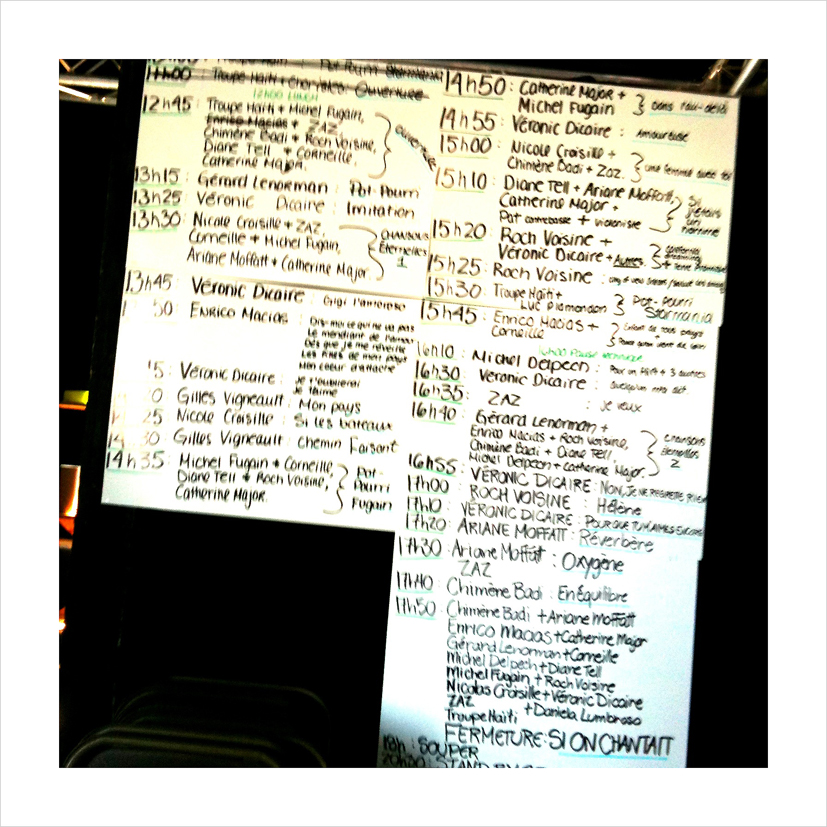 11h00 : Troupe Haïti + Charlebois Ouverture
12H00 LUNCH
12h45 : Troupe Haïti + Michel Fugain,
Enrico Macias + ZAZ,
Chimène Badi + Roch Voisine,
Diane Tell + Corneille,
Catherine Major.
Ouverture
13h15 : Gérard Lenorman : Pot-Pourri
13h25 : Véronic Dicaire : Imitation
13h30 : Nicole Croisille + ZAZ,
Corneille + Michel Fugain,
Ariane Moffatt + Catherine Major
CHANSONS
Éternelles
1
13h45 : Véronic Dicaire : Gigi l'amoroso
50 : Enrico Macias :
Dis-moi ce qui ne va pas
Le mendiant de l'amour
Dès que je me réveille
Les filles de mon pays
Mon coeur d'attache
15 : Véronic Dicaire : Je t'oublierai
Je t'aime
20 : Gilles Vigneault : Mon pays
25 : Nicole Croisille : Si les bateaux
14h30 : Gilles Vigneault : chemin Faisant
14h35 : Michel Fugain + Corneille,
Diane Tell + Roch Voisine,
Catherine Major.
Pot-
Pourri
Fugain
14h50 : Catherine Major +
Michel Fugain
Dans l'au-delà
14h55 : Véronic Dicaire : Amoureuse
15h00 : Nicole Croisille +
Chimène Badi + Zaz.
une femme avec toi
15h10 : Diane Tell + Ariane Moffatt,
Catherine Major +
Pat contrebasse + violoniste
Si
j'étais
un
homme
15h20 : Roch Voisine +
Véronic Dicaire + Autres
California
dreaming
+ Terre Promise
15h25 : Roch Voisine :
15h30 : Troupe Haïti +
Luc Plamondon
Pot-Pourri
Starmania
15h45 : Enrico Macias +
Corneille
Enfant de tous pays
+
16h00 Pause technique
16h10 : Michel Delpech : Pour un flirt + 3 autres
16h30 : Véronic Dicaire : Quelqu'un m'a dit
16h35 : ZAZ : je veux
16h40 : Gérard Lenorman +
Enrico Macias + Roch Voisine,
Chimène Badi + Diane Tell,
Michel Delpech + Catherine Major.
Chansons
éternelles
2
16h55 : VÉRONIC DICAIRE : NON, JE NE REGRETTE RIEN
17h00 : ROCH VOISINE : Hélène
17h10 : VÉRONIC DICAIRE : POUR QUE TU M'AIMES ENCORE
17h20 : ARIANE MOFFATT : Réverbère
17h30 : Ariane Moffatt : Oxygène
ZAZ
17h40 : Chimène Badi : En Équilibre
17h50 : Chimène Badi + Ariane Moffatt
Enrico Macias + Catherine Major
Gérard Lenorman + Corneille
Michel Delpech + Diane Tell
Michel Fugain + Roch Voisine
Nicolas Croisille + Véronic Dicaire
ZAZ + Daniela Lumbroso
Troupe Haïti
FERMETURE : SI ON CHANTAIT
18h : SOUPER
20h00 : STAND BY